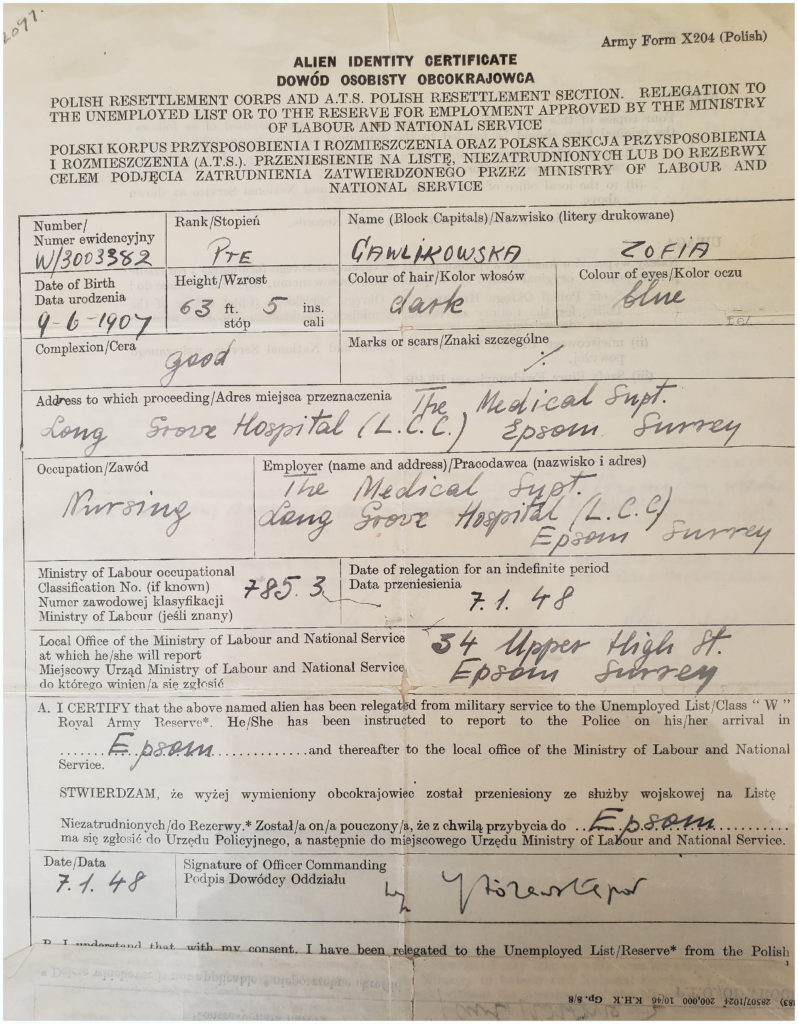 2097.
Army Form X204 (Polish)
ALIEN IDENTITY CERTIFICATE
DOWÓD OSOBISTY OBCOKRAJOWCA
POLISH RESETTLEMENT CORPS AND A.T.S. POLISH RESETTLEMENT SECTION. RELEGATION TO
THE UNEMPLOYED LIST OR TO THE RESERVE FOR EMPLOYMENT APPROVED BY THE MINISTRY
OF LABOUR AND NATIONAL SERVICE
POLSKI KORPUS PRZYSPOSOBIENIA I ROZMIESZCZENIA ORAZ POLSKA SEKCJA PRZYSPOSOBIENIA
I ROZMIESZCZENIA (A.T.S.). PRZENIESIENIE NA LISTĘ, NIEZATRUDNIONYCH LUB DO REZERWY
CELEM PODJĘCIA ZATRUDNIENIA ZATWIERDZONEGO PRZEZ MINISTRY OF LABOUR AND
NATIONAL SERVICE
Number/
Numer ewidencyjny
W/3003382
Rank/Stopień
PTE
Name (Block Capitals)/Nazwisko (litery drukowane)
GAWLIKOWSKA ZOFIA
Date of Birth
Data urodzenia
9-6-1907
Height/Wzrost
63 ft. 5 ins.
stóp cali
Colour of hair/Kolor włosów
dark
Colour of eyes/Kolor oczu
blue
Complexion/Cera
good
Marks or scars/Znaki szczególne
%
Address to which proceeding/Adres miejsca przeznaczenia The Medical Supt.
Long Grove Hospital (L.C.C.) Epsom Surrey
Occupation/Zawód
Nursing
Employer (name and address)/Pracodawca (nazwisko i adres)
The Medical Supt.
Long Grove Hospital (L.C.C)
Epsom Surrey
Ministry of Labour occupational
Classification No. (if known) 785.3
Numer zawodowej klasyfikacji
Ministry of Labour (jeśli znany)
Date of relegation for an indefinite period
Data przeniesienia
7.1.48
Local Office of the Ministry of Labour and National Service
at which he/she will report
Miejscowy Urząd Ministry of Labour and National Service
do którego winien/a się zgłosić
34 Upper High St.
Epsom Surrey
A. I CERTIFY that the above named alien has been relegated from military service to the Unemployed List/Class " W "
Royal Army Reserve*. He/She has been instructed to report to the Police on his/her arrival in
......Epsom..............and thereafter to the local office of the Ministry of Labour and National
Service.
STWIERDZAM, że wyżej wymieniony obcokrajowiec został przeniesiony ze służby wojskowej na Listę
Niezatrudnionych/do Rezerwy.* Został/a on/a pouczony/a, że z chwilą przybycia do ..Epsom......
ma się zgłosić do Urzędu Policyjnego, a następnie do miejscowego Urzędu Ministry of Labour and National Service.
Date/Data
7.1.48
Signature of Officer Commanding
Podpis Dowódcy Oddziału
B. I understand that with my consent. I have been relegated to the Unemployed List/Reserve* from the Polish
28507/1024 200,000 10/46 K.H.K. Gp. 8/8